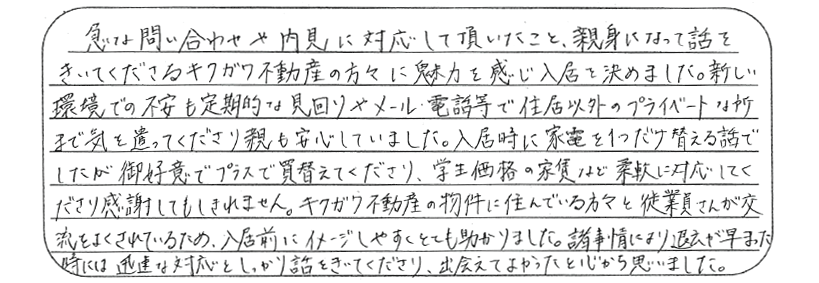 急な問い合わせや内見に対応して頂いたこと、親身になって話を
きいてくださるキクガワ不動産の方々に魅力を感じ入居を決めました。新しい
環境での不安も定期的な見回りやメール・電話等で住居以外のプライベートな所
まで気を遣ってくださり親も安心していました。入居時に家電を1つだけ替える話で
したが御好意でプラスで買替えてくださり、学生価格の家賃など柔軟に対応してく
ださり感謝してもしきれません。キクガワ不動産の物件に住んでいる方々と従業員さんが交
流をよくされているため、入居前にイメージしやすくとても助かりました。諸事情により退去が早まった
時には迅速な対応としっかり話をきいてくださり、出会えてよかったと心から思いました。